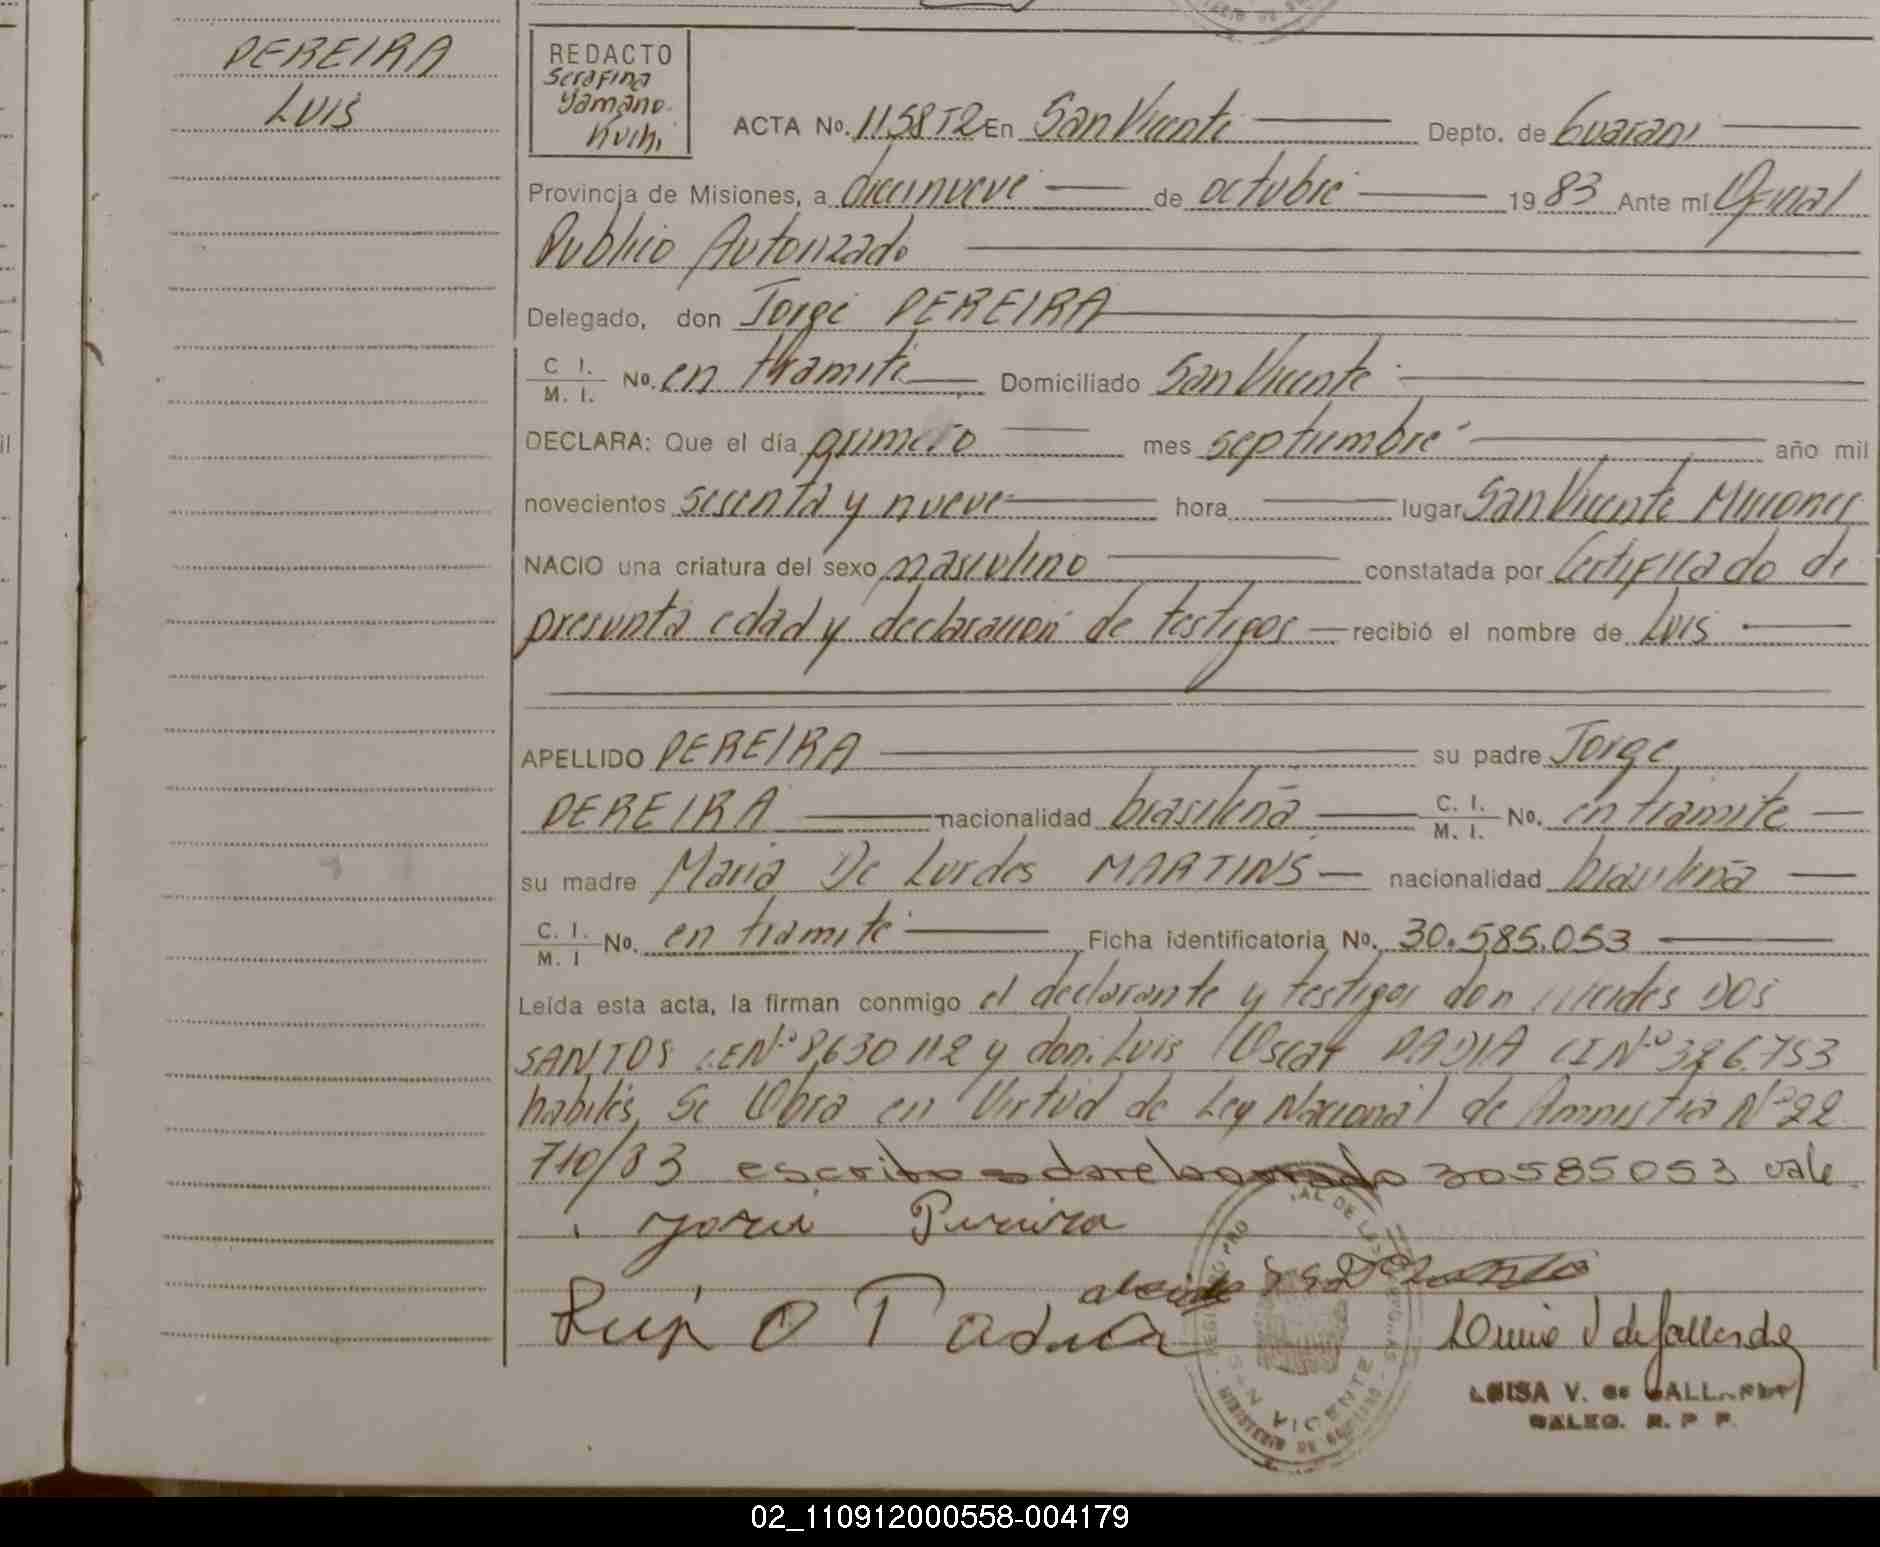 PEREIRA
LUIS
REDACTO
Serafina
Yamano
ACTA No. 1158T2 En San Vicente Depto. de Guarani
Provincia de Misiones, a diecinueve de octubre 1983 Ante mi Oficial
Publico Autorizado
Delegado, don Jorge PEREIRA
C. I. / M. I. No. en tramite Domiciliado San Vicente
DECLARA: Que el día primero mes septiembre año mil
novecientos sesenta y nueve hora lugar San Vicente Misiones
NACIO una criatura del sexo masculino constatada por Certificado de
presunta edad y declaracion de testigos recibió el nombre de Luis
APELLIDO PEREIRA su padre Jorge
PEREIRA nacionalidad brasileña C. I. / M. I. No. en tramite
su madre Maria De Lurdes MARTINS nacionalidad brasileña
C. I. / M. I No. en tramite Ficha identificatoria No. 30.585.053
Leída esta acta, la firman conmigo el declarante y testigos don DOS
SANTOS Nº 8630112 y don: Luis Oscar PADIA CI Nº 326.753
habiles, Se Obra en Virtud de Ley Nacional de Amnistia Nº 22
710/83 escrito sobre borrado 30585053 vale
Pereira
LUISA V. de GALLARDO
DELEG. R. P. P.
SAN VICENTE
MINISTERIO DE GOBIERNO
02_110912000558-004179